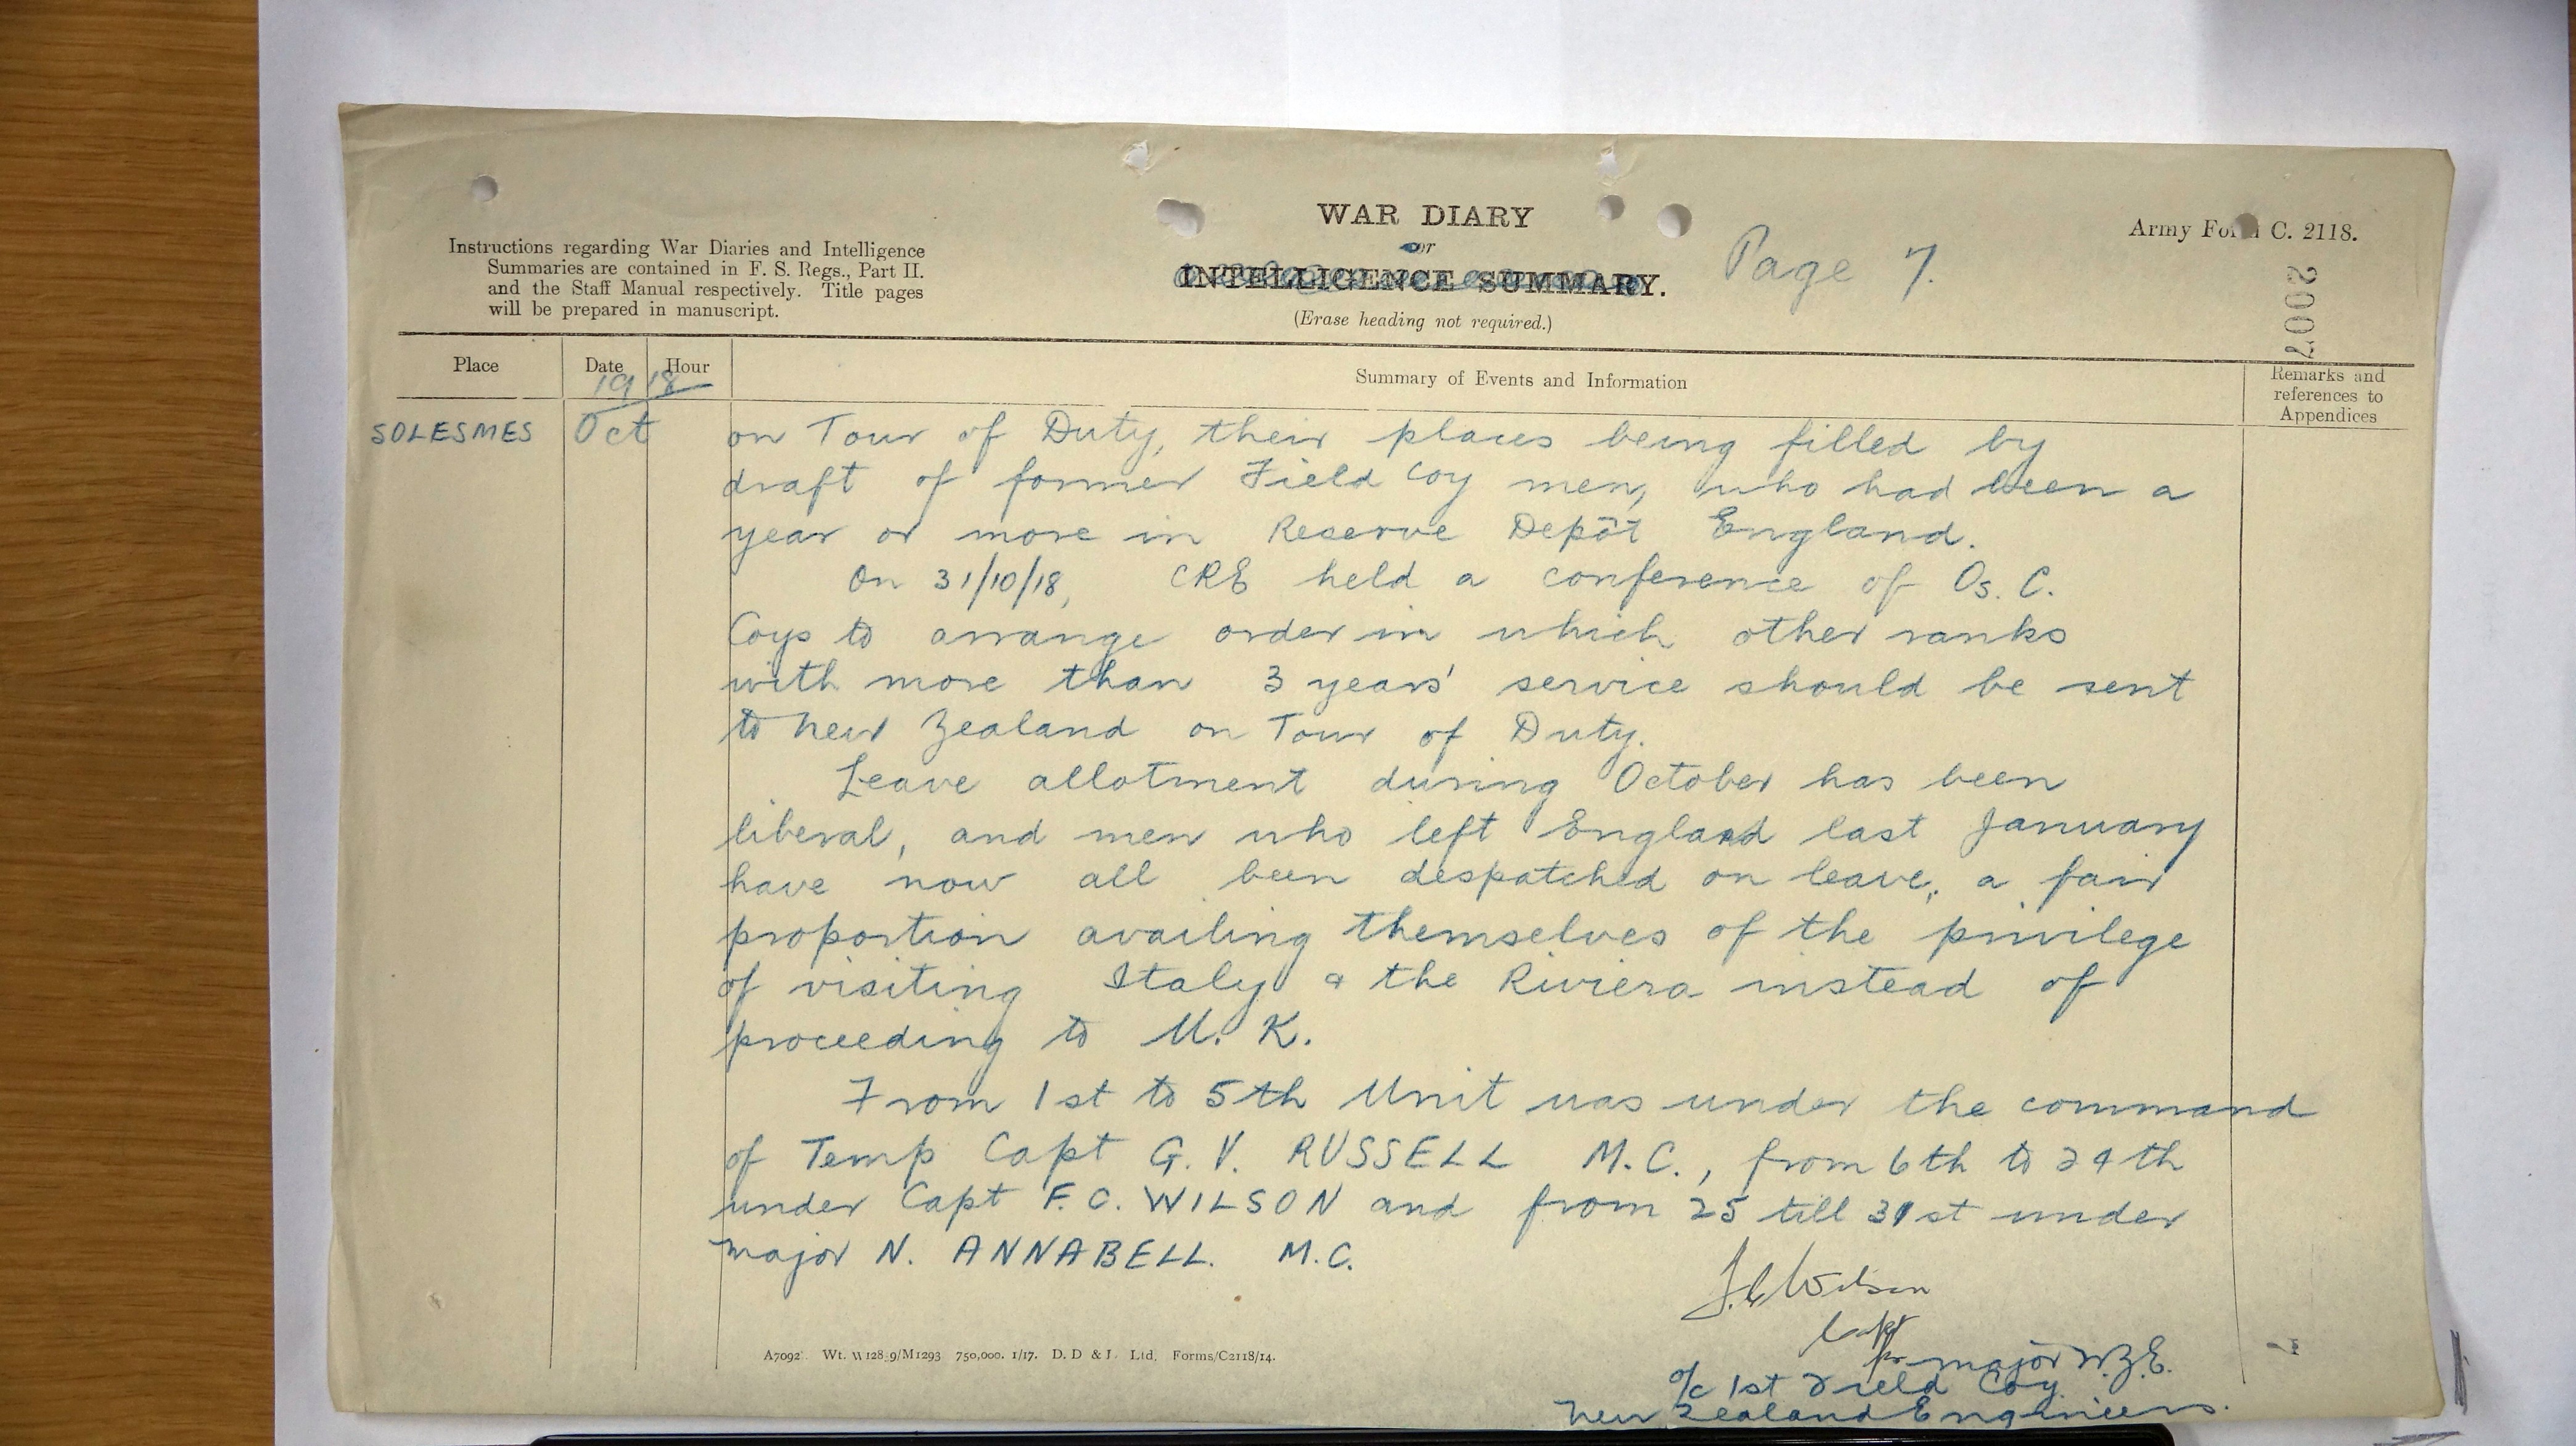 WAR DIARY
or
INTELLIGENCE SUMMARY.
(Erase heading not required.)
Page 7.
Army Form C. 2118.
2007
Instructions regarding War Diaries and Intelligence
Summaries are contained in F. S. Regs., Part II.
and the Staff Manual respectively. Title pages
will be prepared in manuscript.
Place
Date
Hour
1918
Summary of Events and Information
Remarks and
references to
Appendices
SOLESMES
Oct
on Tour of Duty, their places being filled by
draft of former Field Coy men, who had been a
year or more in Reserve Depôt England.
On 31/10/18, CRE held a conference of Os. C.
Coys to arrange order in which other ranks
with more than 3 years' service should be sent
to New Zealand on Tour of Duty.
Leave allotment during October has been
liberal, and men who left England last January
have now all been despatched on leave, a fair
proportion availing themselves of the privilege
of visiting Italy & the Riviera instead of
proceeding to U. K.
From 1st to 5th Unit was under the command
of Temp Capt G. V. RUSSELL M.C., from 6th to 24th
under Capt F. C. WILSON and from 25 till 31st under
Major N. ANNABELL. M.C.
F.C. Wilson
Capt
for Major N.Z.E.
o/c 1st Field Coy
New Zealand Engineers.
Wt. 750,000. 1/17. D. D & L. Ltd. Forms/C2118/14.